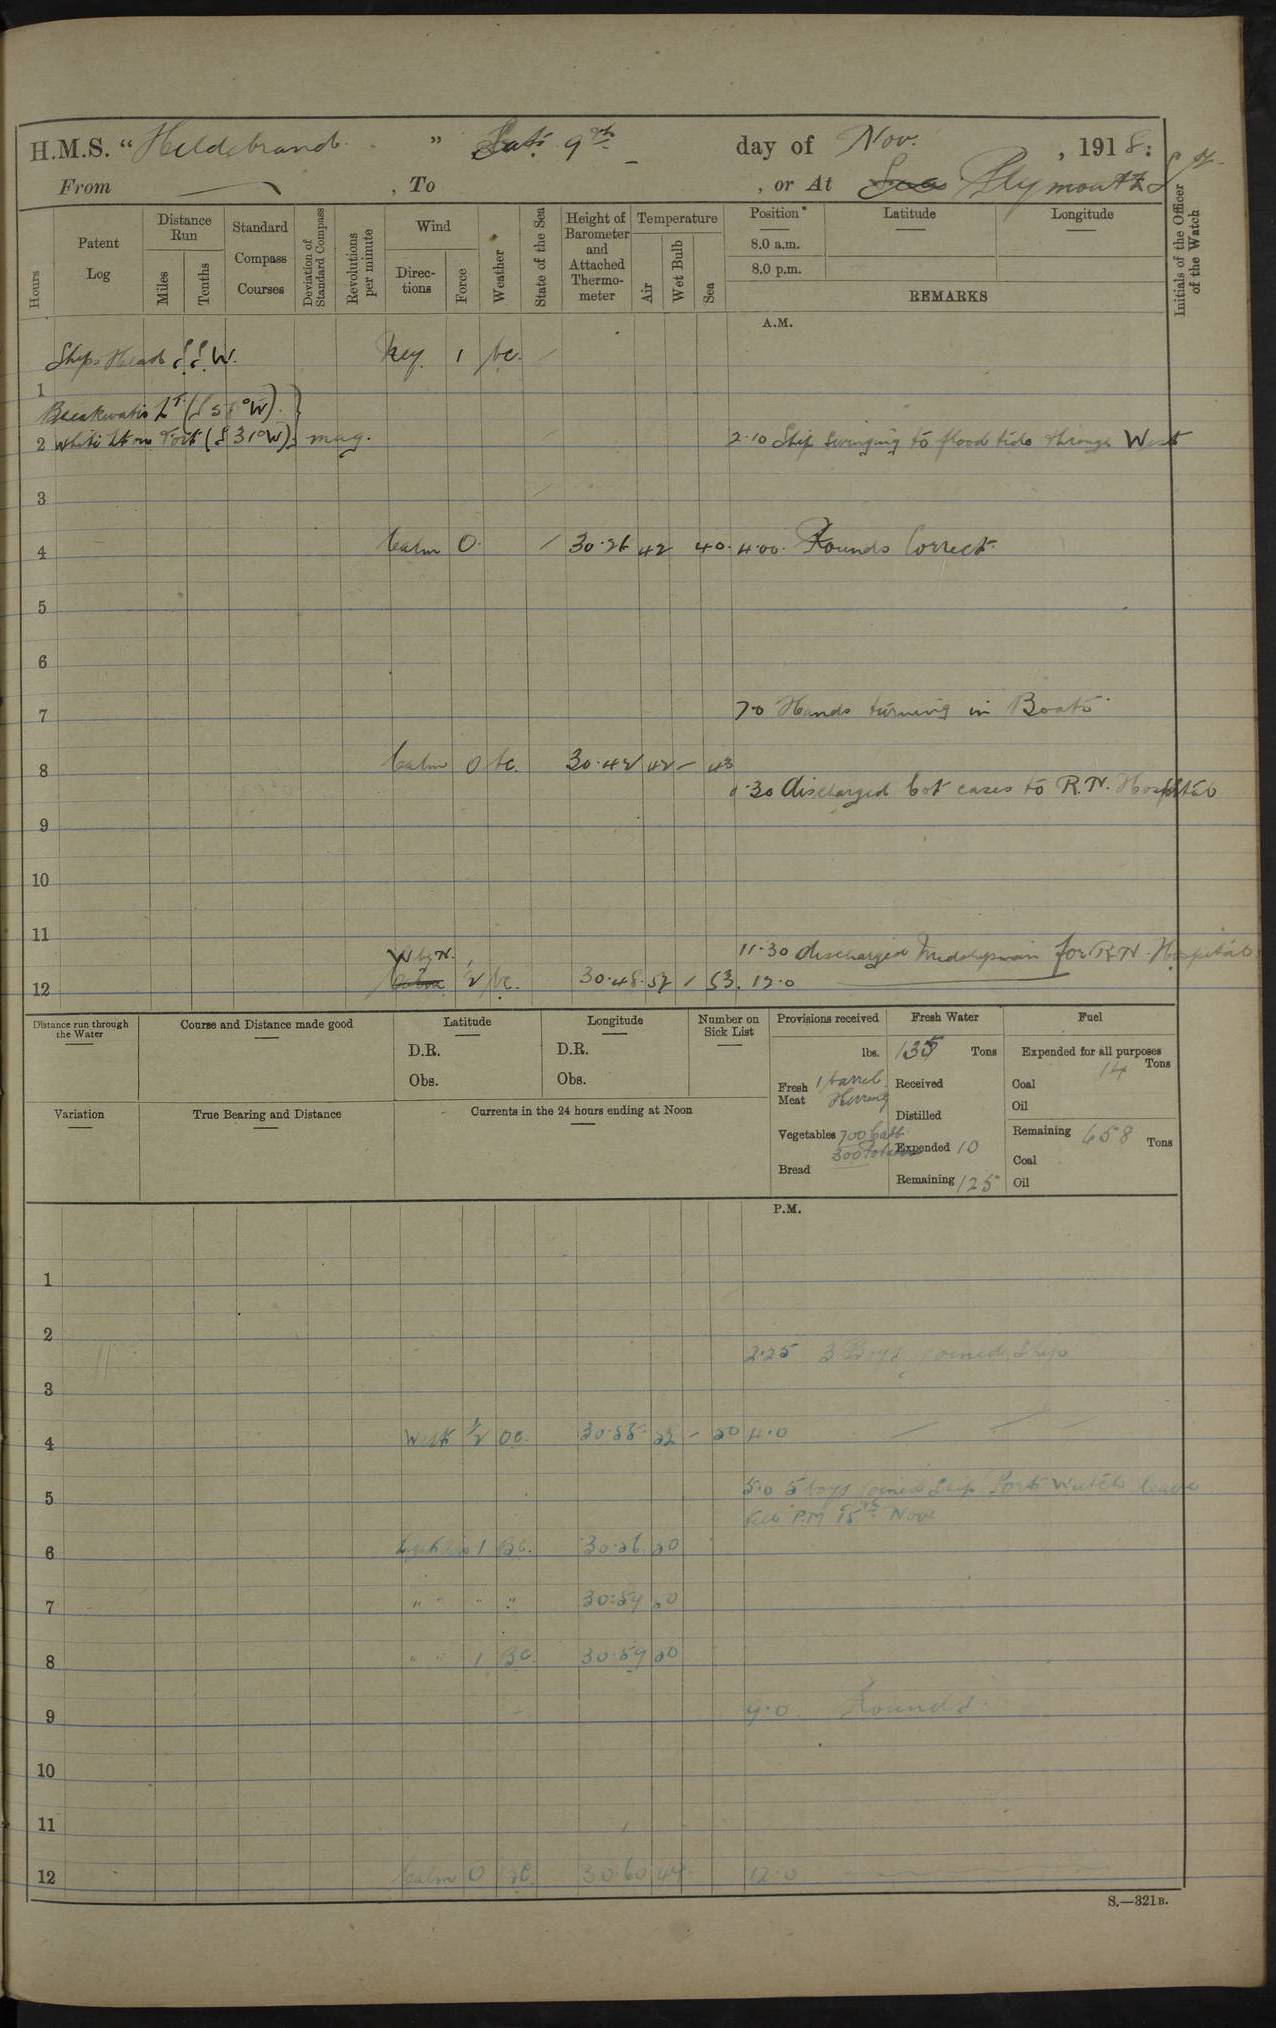 H.M.S. "Hildebrand" Sat. 9th day of Nov. , 1918:
From , To , or At Sea Plymouth
Hours
Patent Log
Distance Run
Miles
Tenths
Standard Compass Courses
Deviation of Standard Compass
Revolutions per minute
Wind
Direc- tions
Force
Weather
State of the Sea
Height of Barometer and Attached Thermo- meter
Temperature
Air
Wet Bulb
Sea
Position
Latitude
Longitude
8.0 a.m.
8.0 p.m.
REMARKS
Initials of the Officer of the Watch
A.M.
Ships Head S.S.W. 1 bc.
1
Breakwater Lt. (S 51°W)
2 White Lt on Fort (S 31°W) mag. 2.10 Ship swinging to flood tide through West
3
4 Calm 0. 30.26 42 40. 4.00. Rounds Correct.
5
6
7 7.0 Hands turning in Boats
8 Calm 0 bc. 30.42 42 - 43
.30 discharged Cot cases to R.N. Hospital
9
10
11
W by N. 11.30 discharged Midshipman for R.N. Hospital
12 Calm 1/2 bc. 30.48. 52 53. 12.0
Distance run through the Water
Course and Distance made good
Latitude
Longitude
Number on Sick List
Provisions received
Fresh Water
Fuel
D.R.
D.R.
Obs.
Obs.
lbs. 135 Tons
Expended for all purposes
14 Tons
Fresh Meat 1 barrel Herring
Received
Coal
Distilled
Oil
Variation
True Bearing and Distance
Currents in the 24 hours ending at Noon
Vegetables 700 Cabb.
300 Potatoes
Expended 10
Remaining 658 Tons
Bread
Coal
Remaining 125
Oil
P.M.
1
2
2.25 3 Boys joined Ship
3
4 West 1/2 OC. - 50 4.0
5.0 5 boys joined Ship Port Watch leave
5 till P.M 15th Nov
6 1 BC. 30.56 50
7 " " " " 30.59 50
8 " " 1 BC. 30.59 50
9 9.0 Rounds.
10
11
12 Calm 0 BC. 30.60 12.0
S.—321B.